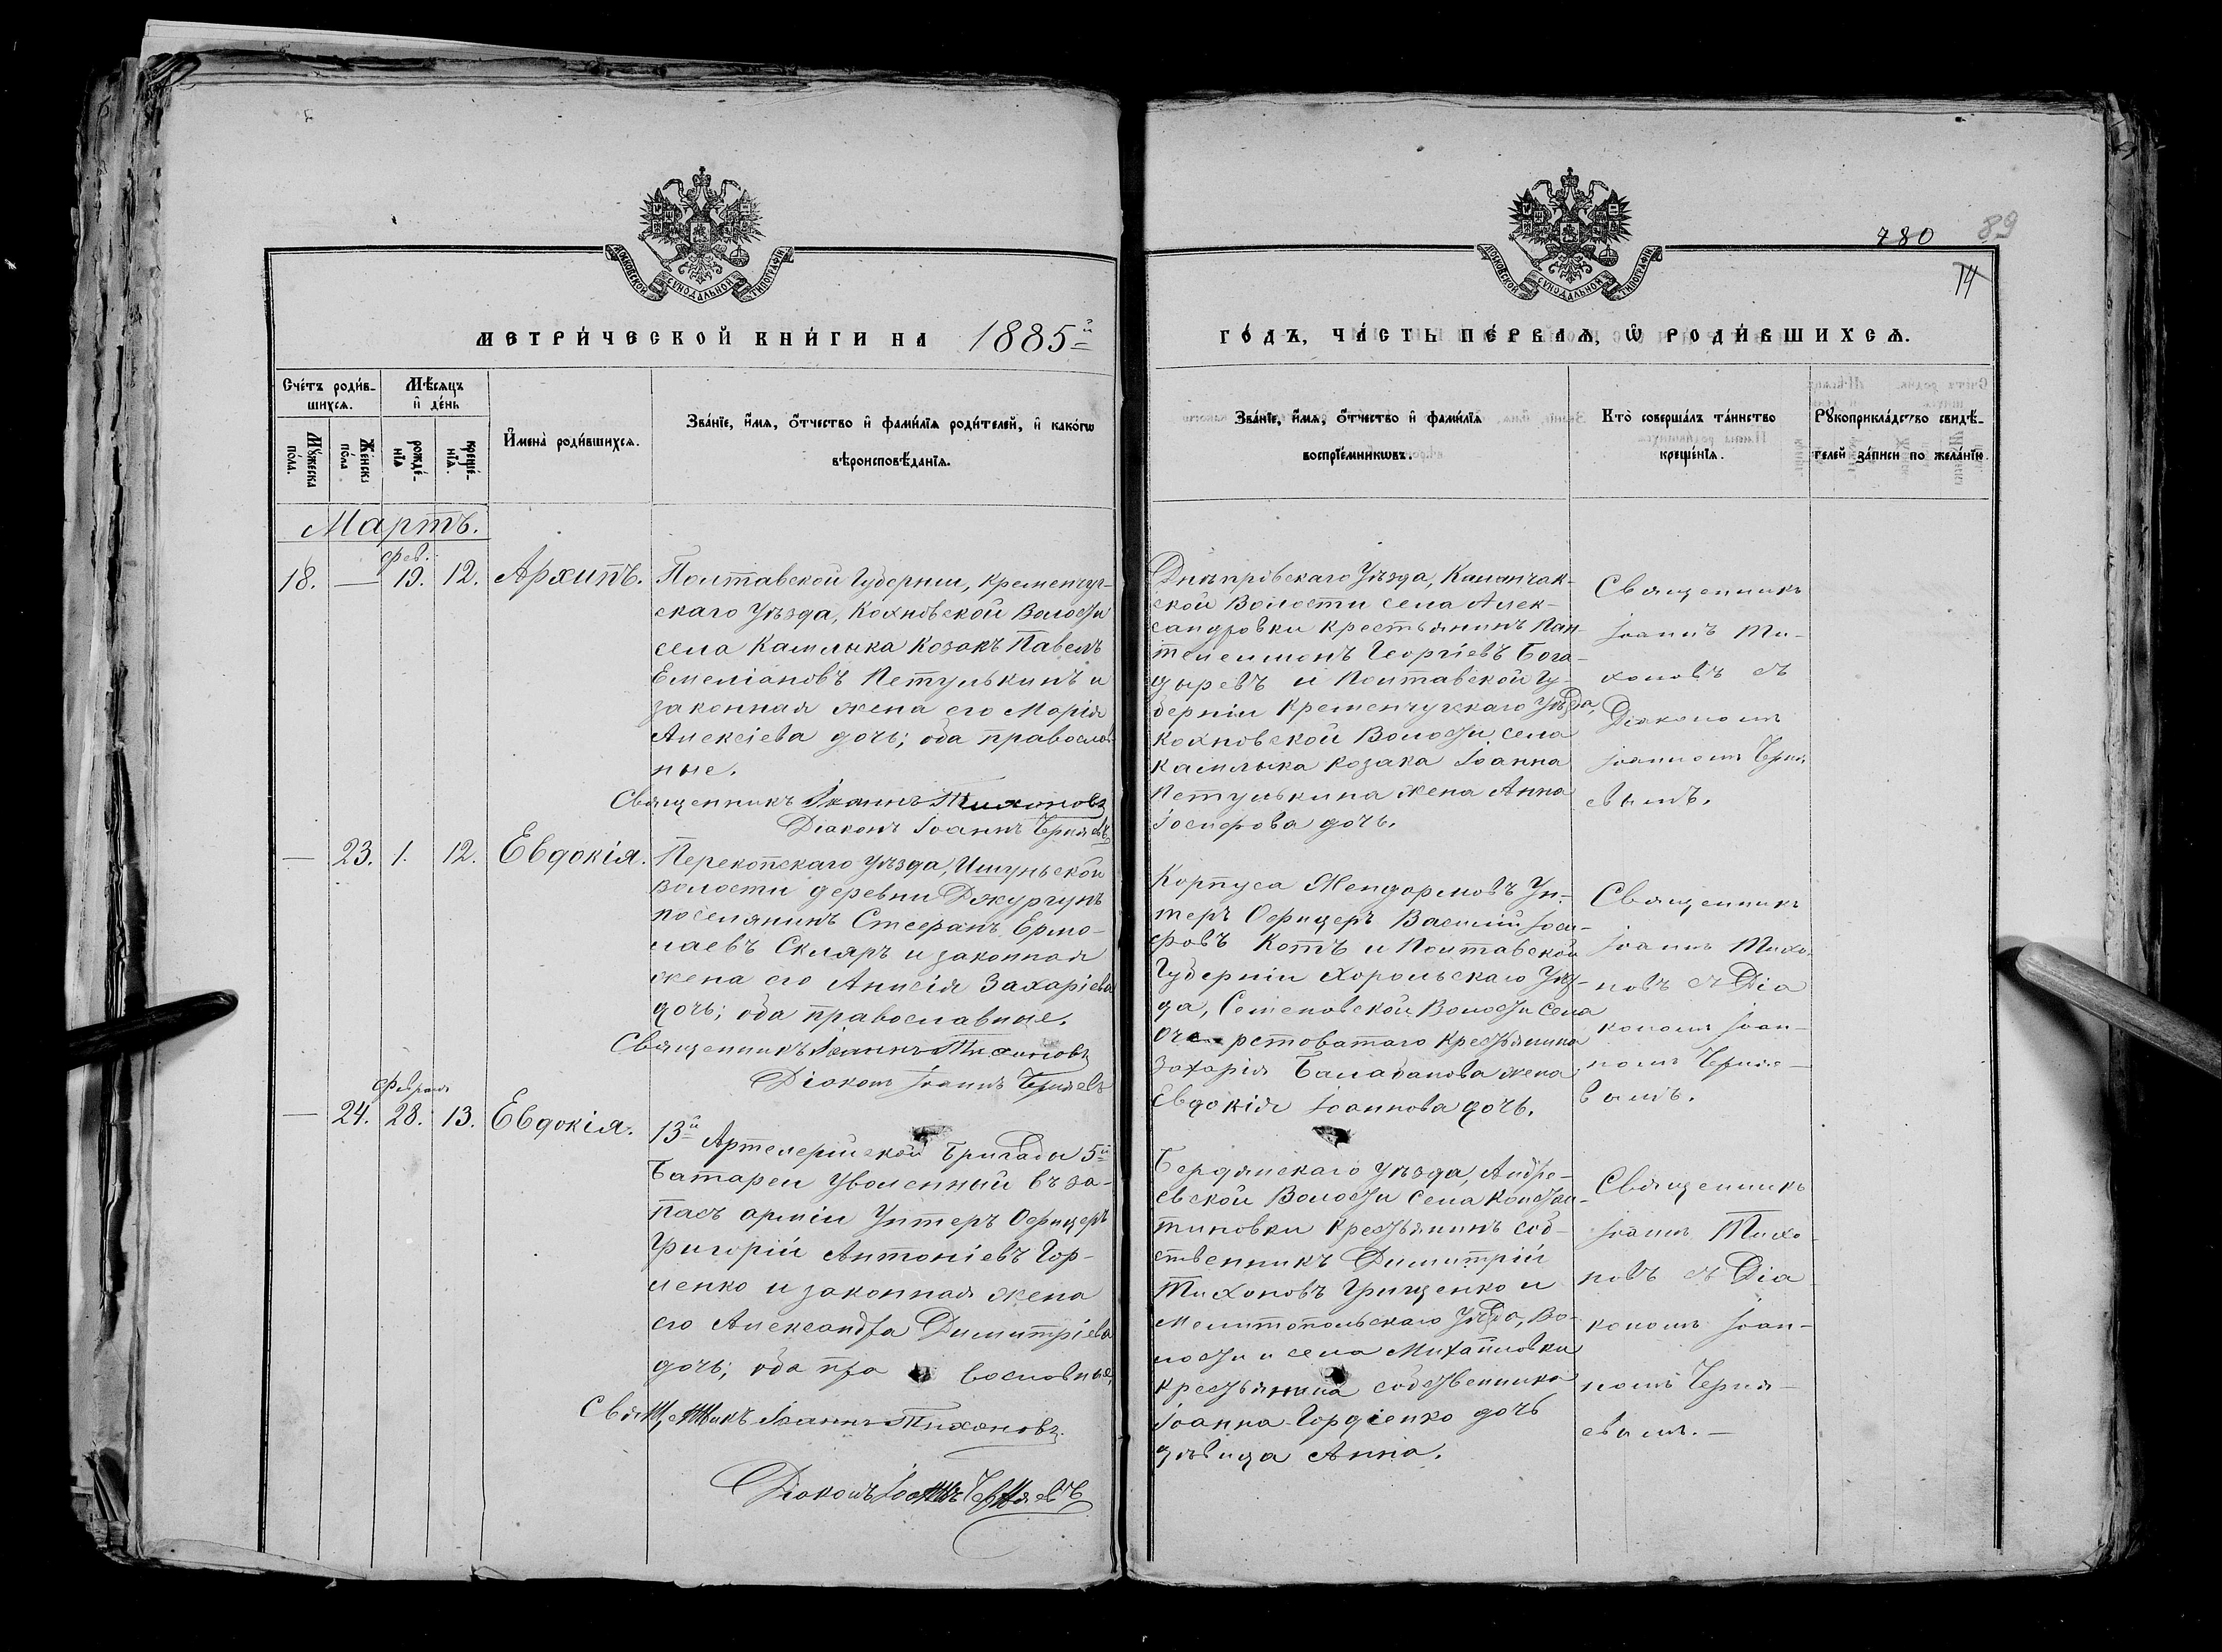 780 89
14
МОСКОВСКОЙ СѴНОДАЛЬНОЙ ТИПОГРАФІИ
МОСКОВСКОЙ СѴНОДАЛЬНОЙ ТИПОГРАФІИ
МЕТРИ́ЧЕСКОЙ КНИ́ГИ НА 1885й
ГО́ДЪ, ЧА́СТЬ ПЕ́РВАѦ, Ѡ РОДИ́ВШИХСѦ.
Сче́тъ роди́в-
шихсѧ.
Мꙋжеска по́ла.
Же́нска по́ла
Мѣ́сѧцъ
и҆ де́нь
рожде́-нїѧ
креще́-нїѧ.
И҆мена̀ роди́вшихсѧ.
Зва́нїе, и҆́мѧ, ѻ҆́тчество и҆ фамі́лїѧ роди́телей, и҆ како́гѡ
вѣроисповѣ́данїѧ.
Зва́нїе, и҆́мѧ, ѻ҆́тчество и҆ фамі́лїѧ
воспрїе́мникѡвъ.
Кто̀ соверша́лъ та́инство
креще́нїѧ.
Рꙋкоприкла́дство свидѣ́-
телей за́писи по жела́нїю.
Мартъ.
фев.
18. — 19. 12. Архипъ.
Полтавской Губерніи, Кременчуг-
скаго Уѣзда, Кохновской Волости
села Камлыка Козакъ Павелъ
Емеліановъ Петулькинъ и
законная жена его Марія
Алексіева дочь; оба православ-
ные.
Священникъ Іоаннъ Тихоновъ
Діаконъ Іоаннъ Черняевъ
Днѣпровскаго Уѣзда, Каланчак-
ской Волости села Алек-
сандровки крестьянинъ Пан-
телеимонъ Георгіевъ Бога-
дыревъ и Полтавской Гу-
берніи Кременчугскаго Уѣзда,
Кохновской Волости села
Камлыка козака Іоанна
Петулькина жена Анна
Іосифова дочь.
Священникъ
Іоаннъ Ти-
хоновъ съ
Діакономъ
Іоанномъ Черня
евымъ.
— 23. 1. 12. Евдокія.
Перекопскаго уѣзда, Ишуньской
волости деревни Джургунъ
поселянинъ Стефанъ Ермо-
лаевъ Скляръ и законная
жена его Анисія Захаріева
дочь; оба православные.
Священникъ Іоаннъ Тихоновъ
Діаконъ Іоаннъ Черняевъ
Корпуса Жендармовъ Ун-
теръ Офицеръ Василій Іоси-
фовъ Котъ и Полтавской
Губерніи Хорольскаго Уѣз-
да, Семеновской Волости села
Оче-ретоватаго крестьянина
Захарія Балабанова жена
Евдокія Іоаннова дочь.
Священникъ
Іоаннъ Тихо-
новъ съ Діа
кономъ Іоан-
номъ Черняе-
вымъ.
Февраля
— 24. 28. 13. Евдокія.
13й Артелерійской Бригады 5й
Батареи уволенный въ за-
пасъ арміи Унтеръ Офицеръ
Григорій Антоніевъ Гор-
ленко и законная жена
его Александра Димитріева
дочь; оба пра вославные,
Священникъ Іоаннъ Тихоновъ.
Діаконъ Іоаннъ Черняевъ
Бердянскаго уѣзда, Андре-
евской Волости села Констан-
тиновки крестьянинъ соб-
ственникъ Димитрій
Тихоновъ Грищенко и
Мелитопольскаго Уѣзда, Во-
лости и села Михайловки
крестьянина собственника
Іоанна Гордіенко дочь
дѣвица Анна.
Священникъ
Іоаннъ Тихо
новъ съ Діа
кономъ Іоан-
номъ Черня-
евымъ. —